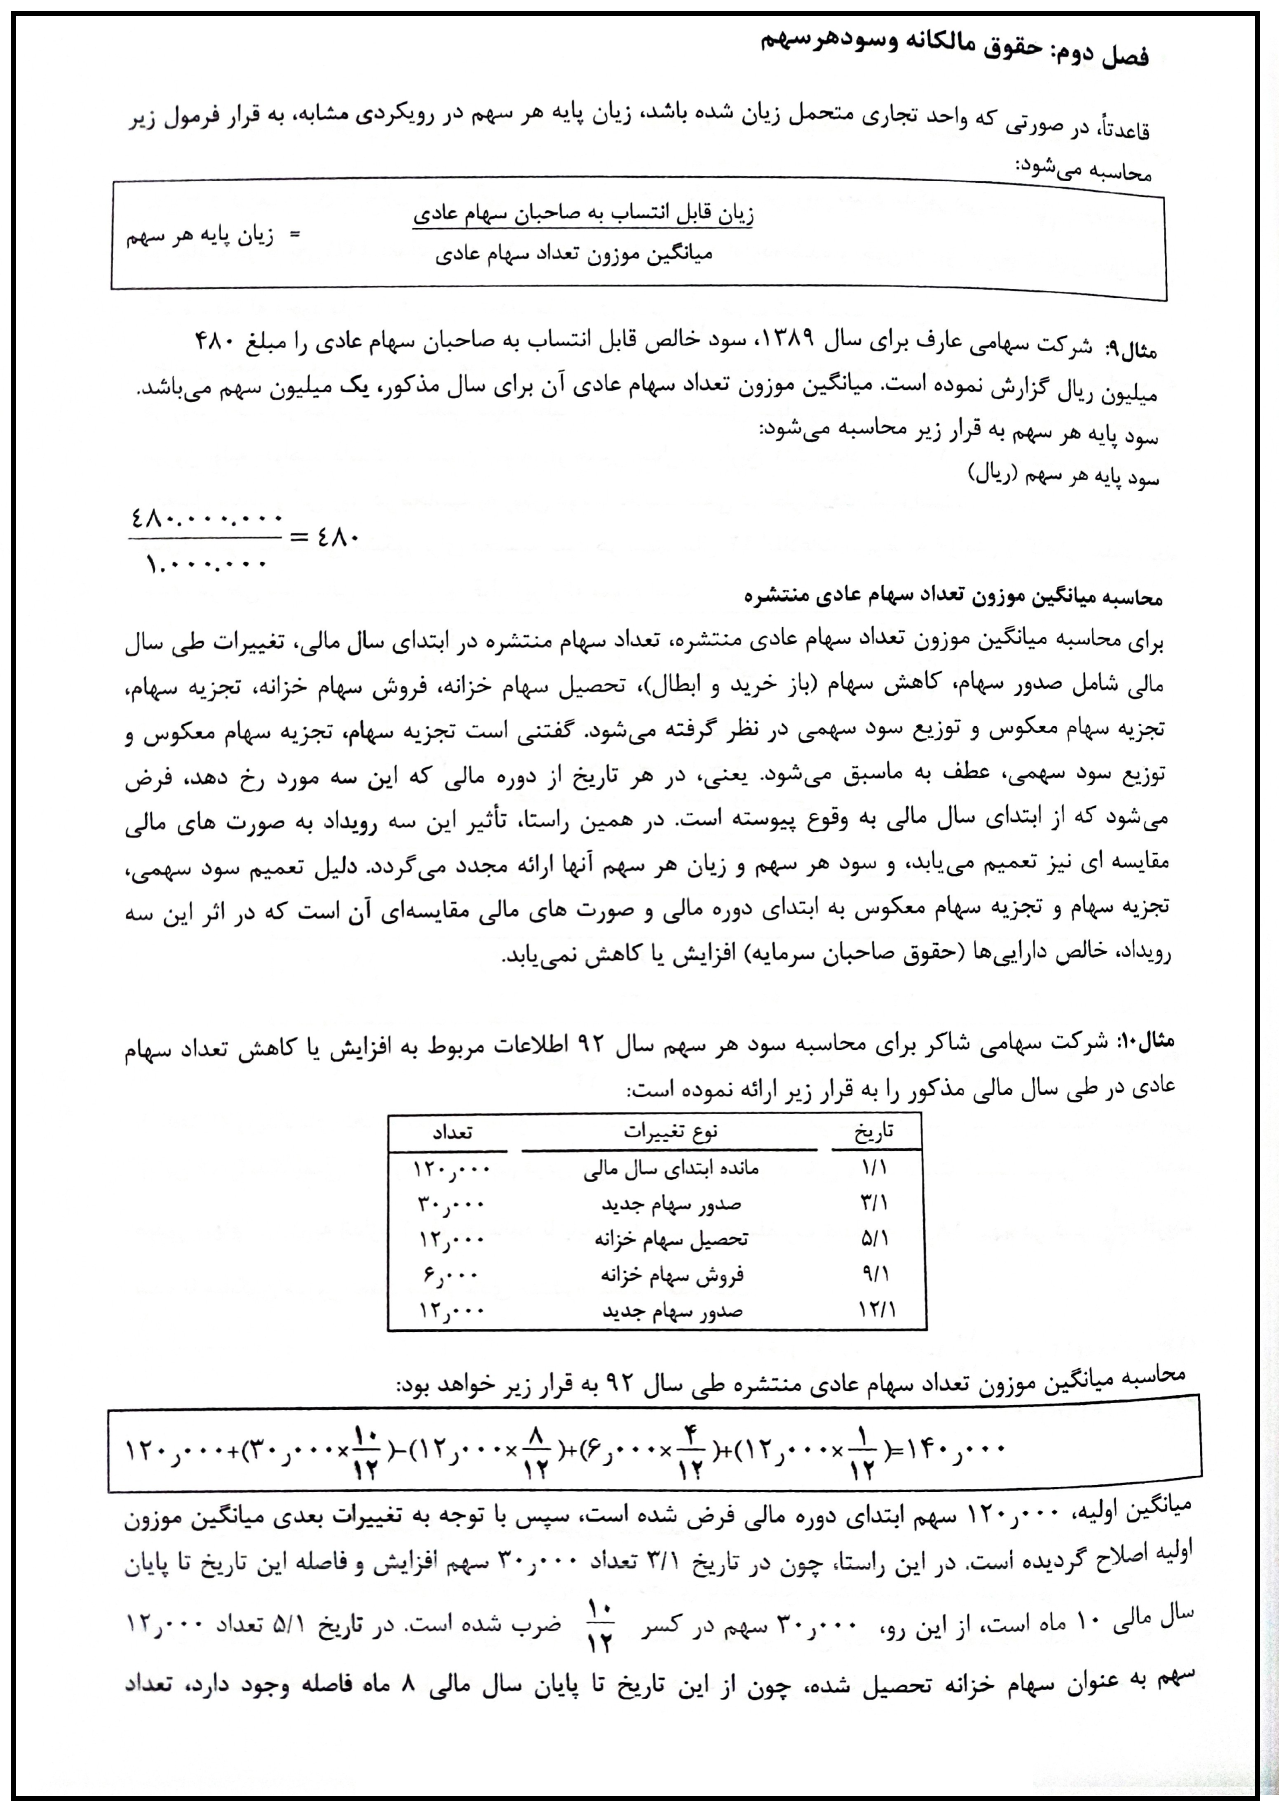 فصل دوم: حقوق مالکانه وسودهرسهم
قاعدتاً، در صورتی که واحد تجاری متحمل زیان شده باشد، زیان پایه هر سهم در رویکردی مشابه، به قرار فرمول زیر
محاسبه می‌شود:
زیان قابل انتساب به صاحبان سهام عادی
زیان پایه هر سهم =
میانگین موزون تعداد سهام عادی
مثال۹: شرکت سهامی عارف برای سال ۱۳۸۹، سود خالص قابل انتساب به صاحبان سهام عادی را مبلغ ۴۸۰
میلیون ریال گزارش نموده است. میانگین موزون تعداد سهام عادی آن برای سال مذکور، یک میلیون سهم می‌باشد.
سود پایه هر سهم به قرار زیر محاسبه می‌شود:
سود پایه هر سهم (ریال)
٤٨٠.٠٠٠.٠٠٠
= ٤٨٠
١.٠٠٠.٠٠٠
محاسبه میانگین موزون تعداد سهام عادی منتشره
برای محاسبه میانگین موزون تعداد سهام عادی منتشره، تعداد سهام منتشره در ابتدای سال مالی، تغییرات طی سال
مالی شامل صدور سهام، کاهش سهام (باز خرید و ابطال)، تحصیل سهام خزانه، فروش سهام خزانه، تجزیه سهام،
تجزیه سهام معکوس و توزیع سود سهمی در نظر گرفته می‌شود. گفتنی است تجزیه سهام، تجزیه سهام معکوس و
توزیع سود سهمی، عطف به ماسبق می‌شود. یعنی، در هر تاریخ از دوره مالی که این سه مورد رخ دهد، فرض
می‌شود که از ابتدای سال مالی به وقوع پیوسته است. در همین راستا، تأثیر این سه رویداد به صورت های مالی
مقایسه ای نیز تعمیم می‌یابد، و سود هر سهم و زیان هر سهم آنها ارائه مجدد می‌گردد. دلیل تعمیم سود سهمی،
تجزیه سهام و تجزیه سهام معکوس به ابتدای دوره مالی و صورت های مالی مقایسه‌ای آن است که در اثر این سه
رویداد، خالص دارایی‌ها (حقوق صاحبان سرمایه) افزایش یا کاهش نمی‌یابد.
مثال۱۰: شرکت سهامی شاکر برای محاسبه سود هر سهم سال ۹۲ اطلاعات مربوط به افزایش یا کاهش تعداد سهام
عادی در طی سال مالی مذکور را به قرار زیر ارائه نموده است:
تاریخ نوع تغییرات تعداد
۱/۱ مانده ابتدای سال مالی ۱۲۰٫۰۰۰
۳/۱ صدور سهام جدید ۳۰٫۰۰۰
۵/۱ تحصیل سهام خزانه ۱۲٫۰۰۰
۹/۱ فروش سهام خزانه ۶٫۰۰۰
۱۲/۱ صدور سهام جدید ۱۲٫۰۰۰
محاسبه میانگین موزون تعداد سهام عادی منتشره طی سال ۹۲ به قرار زیر خواهد بود:
۱۲۰٫۰۰۰+(۳۰٫۰۰۰×۱۰/۱۲)-(۱۲٫۰۰۰×۸/۱۲)+(۶٫۰۰۰×۴/۱۲)+(۱۲٫۰۰۰×۱/۱۲)=۱۴۰٫۰۰۰
میانگین اولیه، ۱۲۰٫۰۰۰ سهم ابتدای دوره مالی فرض شده است، سپس با توجه به تغییرات بعدی میانگین موزون
اولیه اصلاح گردیده است. در این راستا، چون در تاریخ ۳/۱ تعداد ۳۰٫۰۰۰ سهم افزایش و فاصله این تاریخ تا پایان
سال مالی ۱۰ ماه است، از این رو، ۳۰٫۰۰۰ سهم در کسر ۱۰/۱۲ ضرب شده است. در تاریخ ۵/۱ تعداد ۱۲٫۰۰۰
سهم به عنوان سهام خزانه تحصیل شده، چون از این تاریخ تا پایان سال مالی ۸ ماه فاصله وجود دارد، تعداد